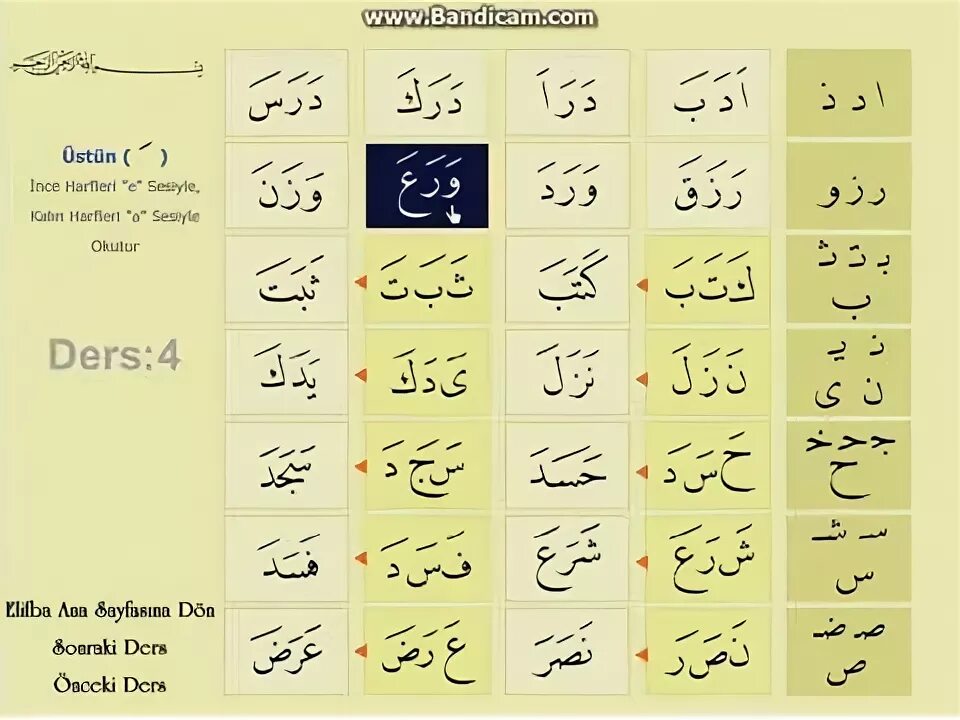 www.Bandicam.com
ا د ذ
اَ دَ بَ
دَرَاَ
دَرَكَ
دَرَسَ
ر ز و
رَزَقَ
وَرَدَ
وَرَعَ
وَزَنَ
بـ تـ ثـ
ب
كَـ تَـ بَ
كَتَبَ
ثَـ بَـ تَ
ثَبَتَ
نـ يـ
ن ى
نَ زَ لَ
نَزَلَ
ىَ دَ كَ
يَدَكَ
جـ حـ خـ
ح
حَ سَـ دَ
حَسَدَ
سَـ جَ دَ
سَجَدَ
سـ شـ
س
شَـ رَ عَ
شَرَعَ
فَـ سَـ دَ
فَسَدَ
صـ ضـ
ص
نَ صَـ رَ
نَصَرَ
عَ رَ ضَ
عَرَضَ
Üstün ( َ )
İnce Harfleri "e" Sesiyle,
Kalın Harfleri "a" Sesiyle
Okutur
Ders:4
Elifba Ana Sayfasına Dön
Sonraki Ders
Önceki Ders